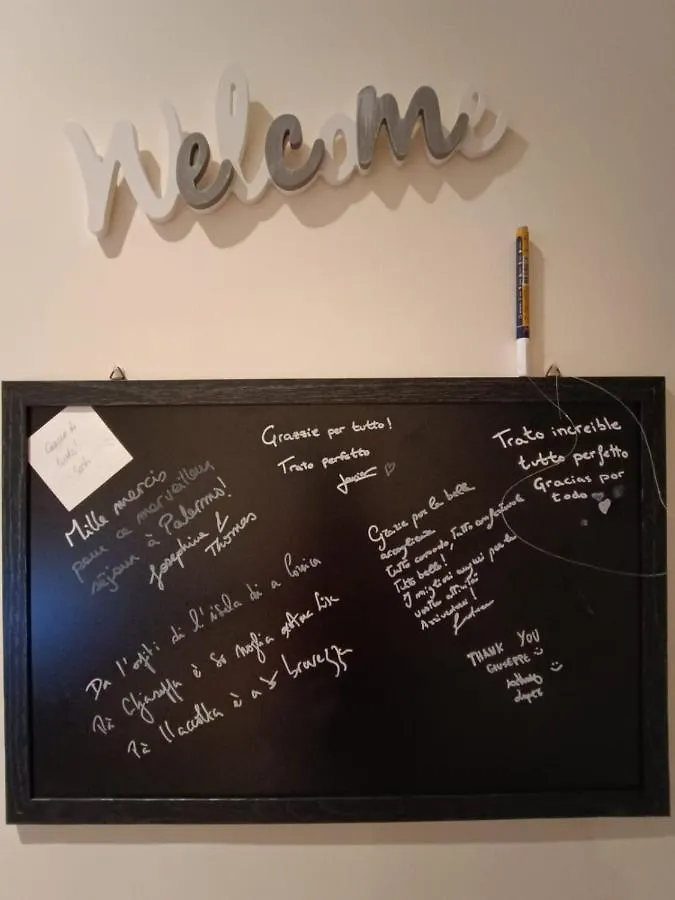 Welcome
Grazie di
tutto!
Mille mercis
pour ce merveilleux
séjour à Palermo!
Josephine &
Thomas
Grazzie per tutto!
Trato perfetto
Javier
Trato increible
tutto perfetto
Gracias por
todo
Grazie per la bella
accoglienza
tutto comodo, tutto confortevole
tutto bello!
I migliori auguri per la
vostra attività
Arrivederci!
Da l'ospiti di l'isula di a Corsica
Pà Ghjuseppa è So moglia
Pà l'accolta è a bravezza
THANK YOU
GIUSEPPE
Anthony
Lopez